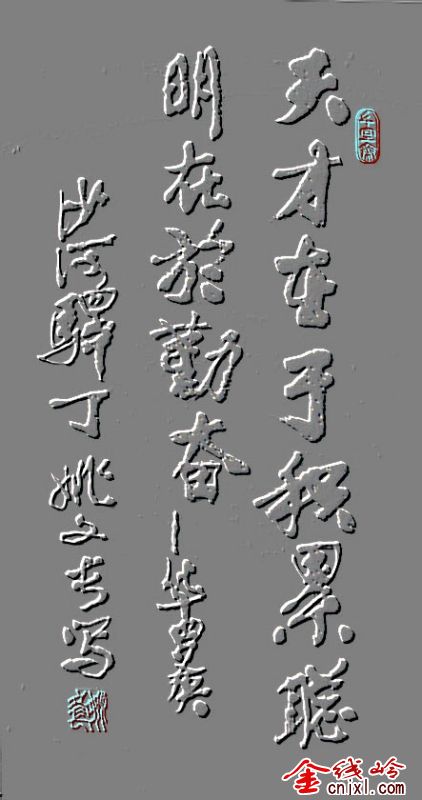 天才在于积累聪
明在於勤奋-华罗庚
沙河驿丁姚文专写
金线岭
cnjxl.com